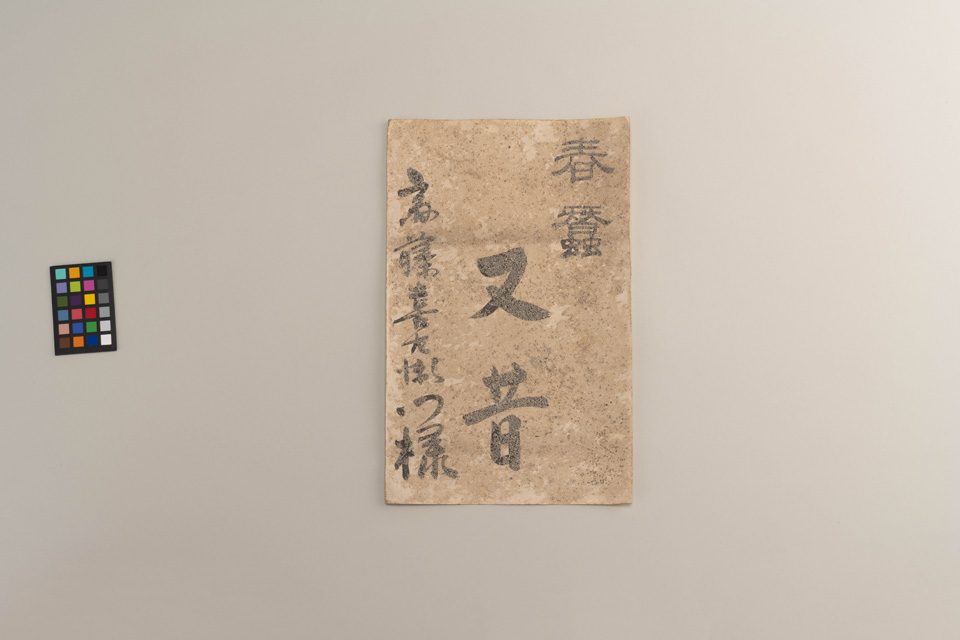 春蠶
又昔
斎藤喜左衛門様